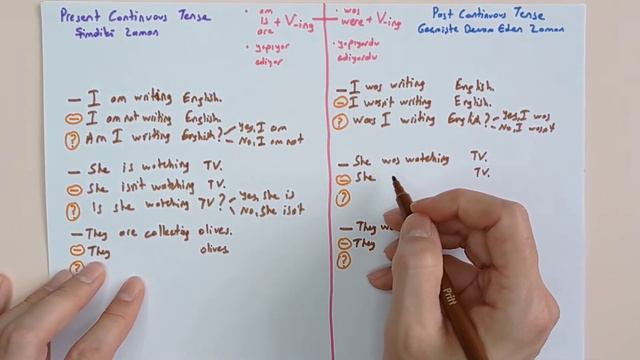 Present Continuous Tense
Şimdiki Zaman
• am
is
are
+ V-ing
• yapıyor
ediyor
— I am writing English.
— I am not writing English.
? Am I writing English? Yes, I am
No, I am not
— She is watching TV.
— She isn't watching TV.
? Is she watching TV? Yes, she is
No, She isn't
— They are collecting olives.
— They olives.
?
Past Continuous Tense
Geçmişte Devam Eden Zaman
• was
were + V-ing
• yapıyordu
ediyordu
— I was writing English.
— I wasn't writing English.
? Was I writing English? Yes, I was
No, I wasn't
— She was watching TV.
— She TV.
?
— They
— They
?
Pritt